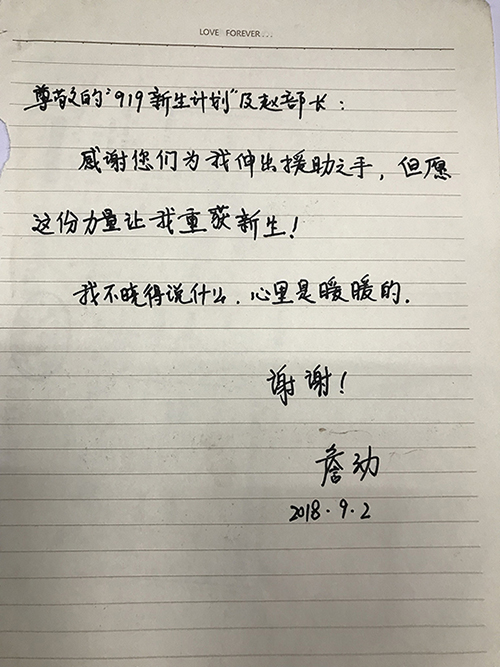 LOVE FOREVER...
尊敬的“919新生计划”及赵部长：
感谢您们为我伸出援助之手，但愿
这份力量让我重获新生！
我不晓得说什么．心里是暖暖的．
谢谢！
詹劝
2018.9.2